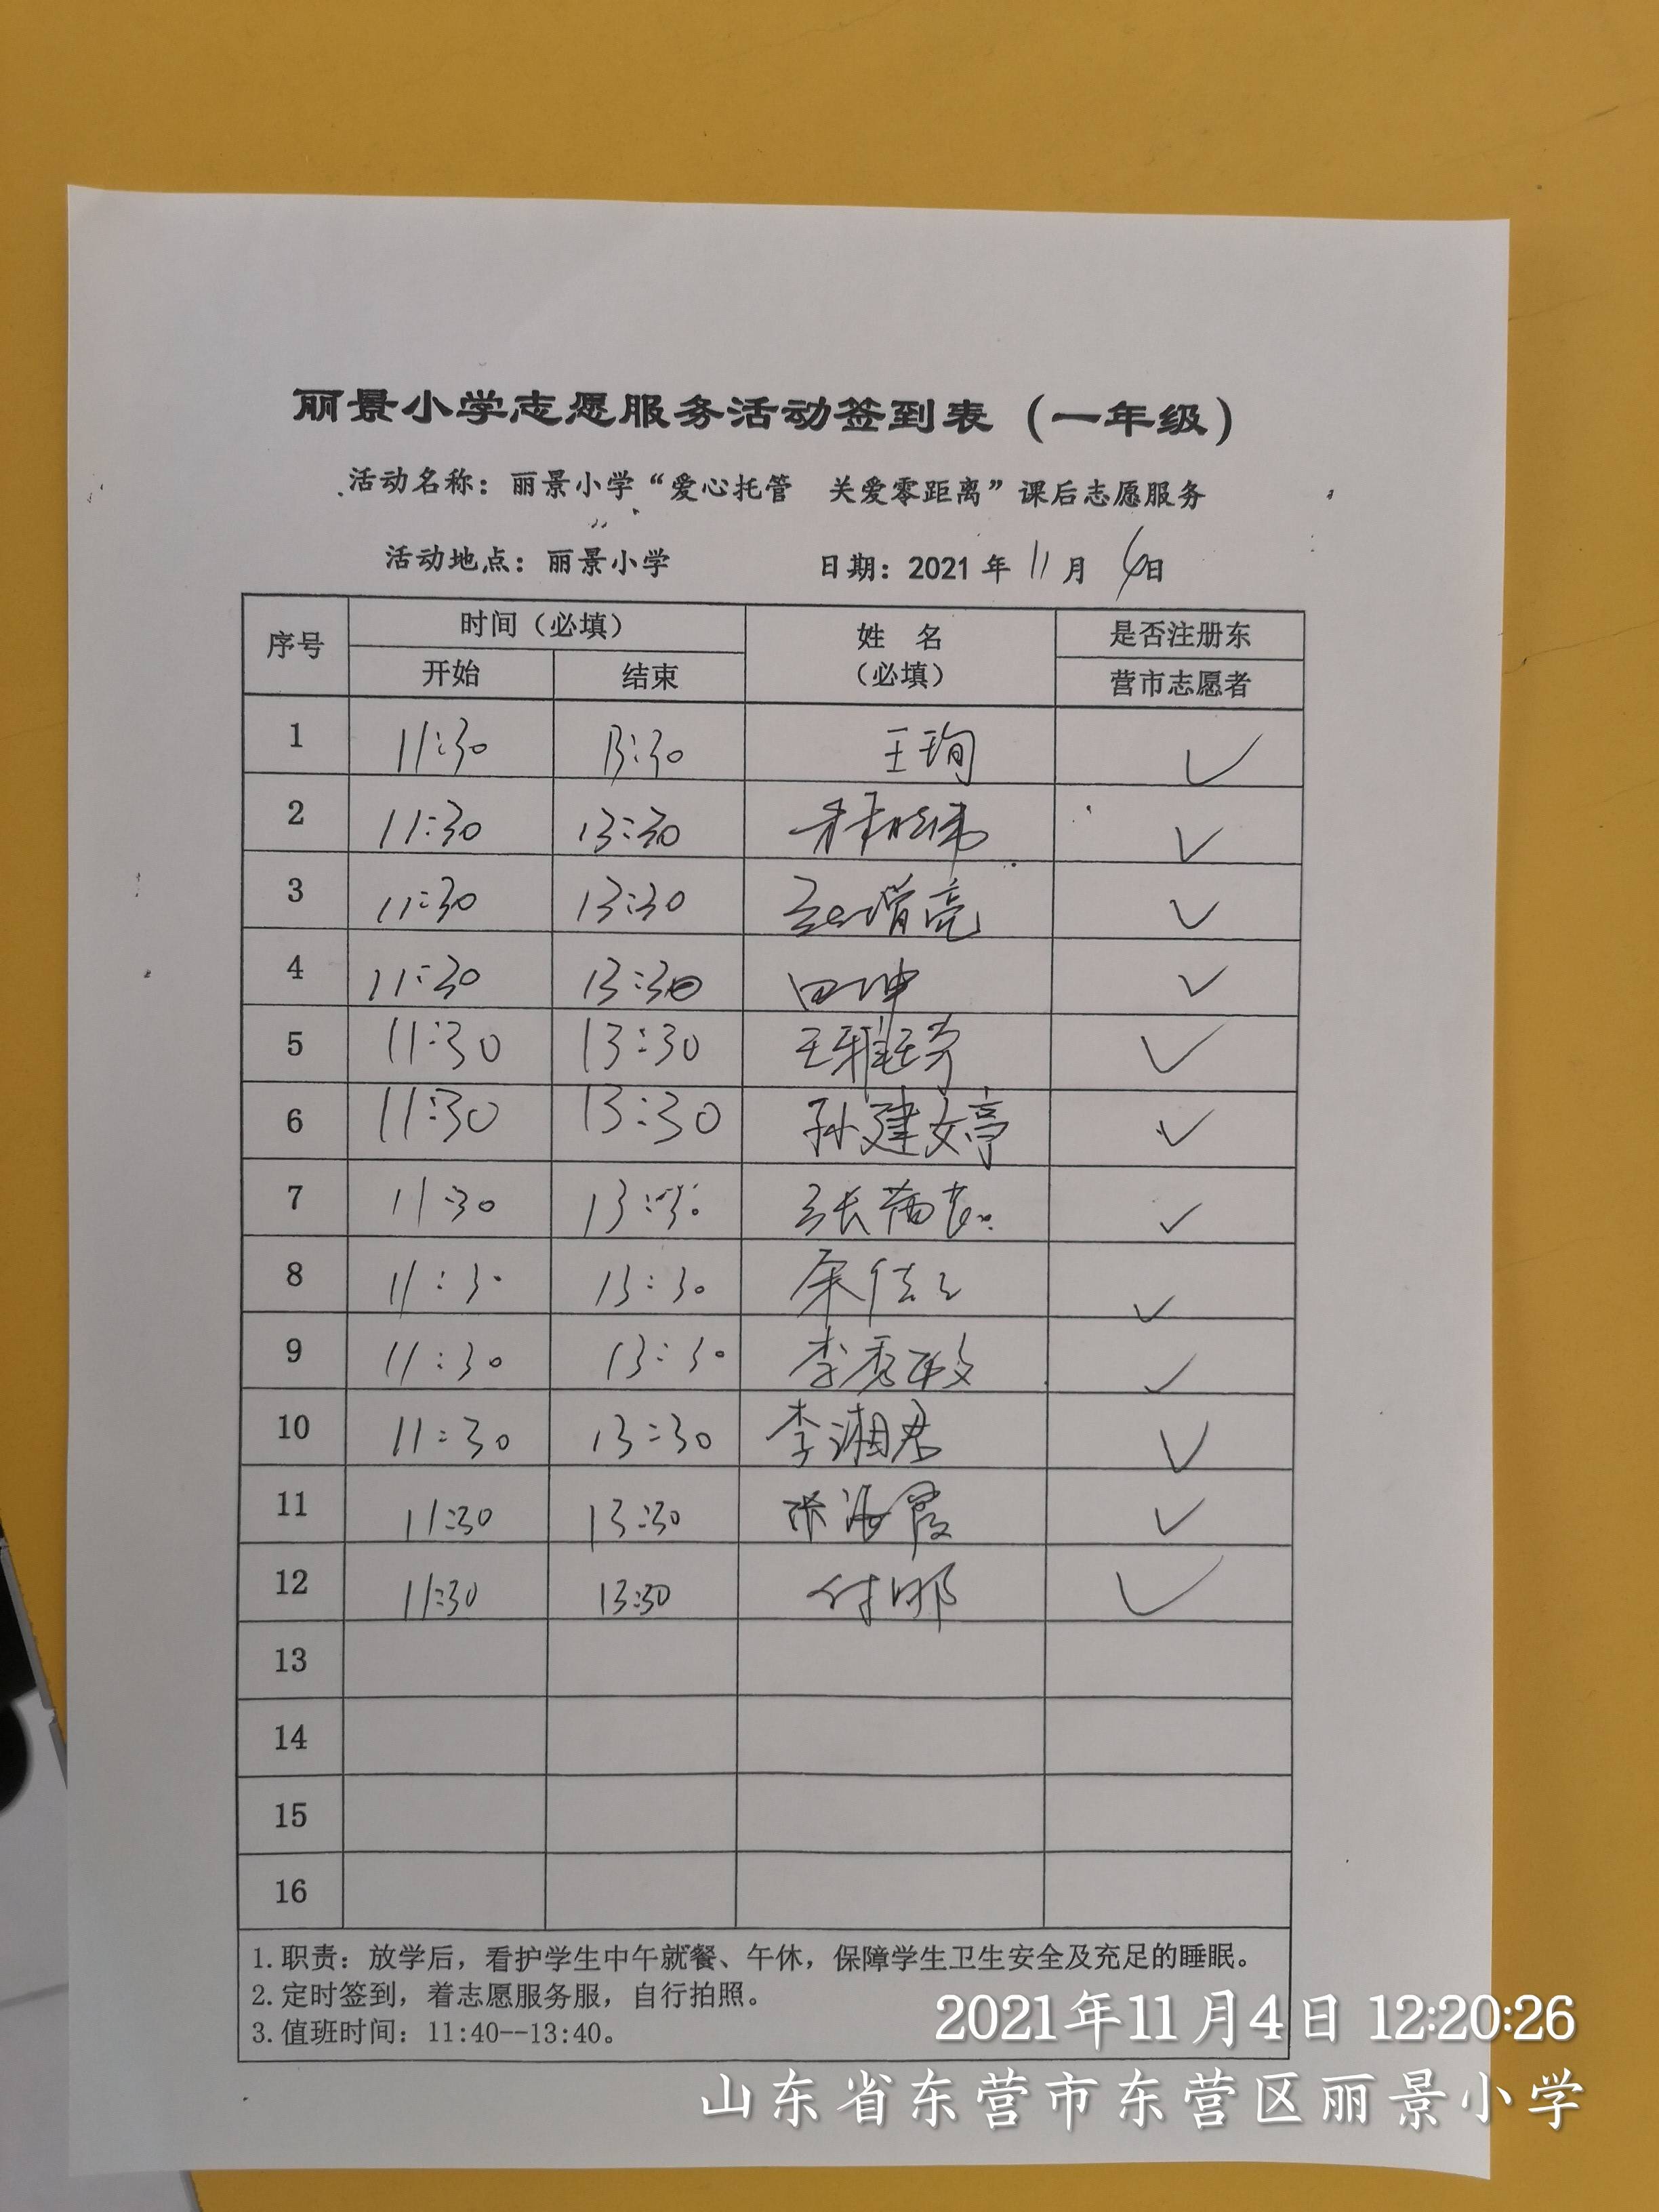 丽景小学志愿服务活动签到表（一年级）
活动名称：丽景小学“爱心托管 关爱零距离”课后志愿服务
活动地点：丽景小学 日期：2021年11月4日
序号 时间（必填） 姓名（必填） 是否注册东营市志愿者
开始 结束
1 11:30 13:30 王珣 ✓
2 11:30 13:30 ✓
3 11:30 13:30 增亮 ✓
4 11:30 13:30 田坤 ✓
5 11:30 13:30 王雅 ✓
6 11:30 13:30 孙建婷 ✓
7 11:30 13:30 张 ✓
8 11:30 13:30 ✓
9 11:30 13:30 李秀敏 ✓
10 11:30 13:30 李湘君 ✓
11 11:30 13:30 张海霞 ✓
12 11:30 13:30 付娜 ✓
13
14
15
16
1.职责：放学后，看护学生中午就餐、午休，保障学生卫生安全及充足的睡眠。
2.定时签到，着志愿服务服，自行拍照。
3.值班时间：11:40--13:40。
2021年11月4日 12:20:26
山东省东营市东营区丽景小学